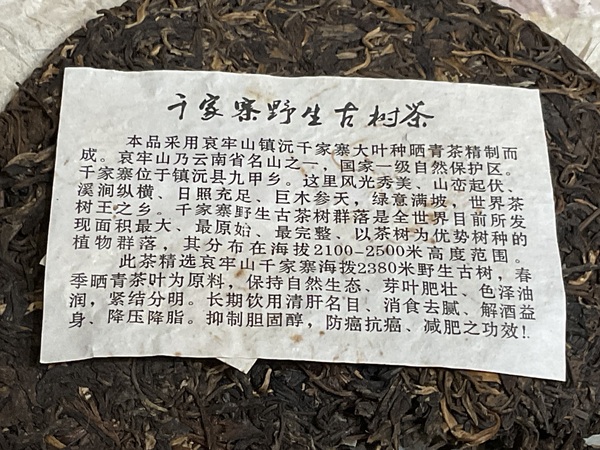 千家寨野生古树茶
本品采用哀牢山镇沅千家寨大叶种晒青茶精制而
成。哀牢山乃云南省名山之一，国家一级自然保护区。
千家寨位于镇沅县九甲乡。这里风光秀美、山峦起伏、
溪涧纵横、日照充足、巨木参天，绿意满坡，世界茶
树王之乡。千家寨野生古茶树群落是全世界目前所发
现面积最大、最原始、最完整、以茶树为优势树种的
植物群落，其分布在海拔2100-2500米高度范围。
此茶精选哀牢山千家寨海拨2380米野生古树，春
季晒青茶叶为原料，保持自然生态、芽叶肥壮、色泽油
润，紧结分明。长期饮用清肝名目、消食去腻、解酒益
身、降压降脂。抑制胆固醇，防癌抗癌、减肥之功效!